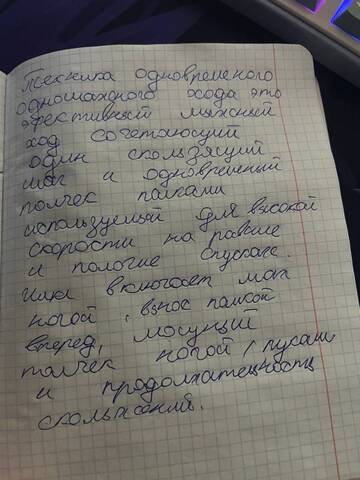 Техника одновременого
одношажного хода это
эфективный лыжный
ход сочетающий
один скользящий
шаг и одновременный
толчек палками
используемый для высокой
скорости на равние
и пологие спуска.
Цикл включает мах
ногой, вынос палкой
вперед, мощущий
толчек ногой, руками
и продолжательность
скольжений.